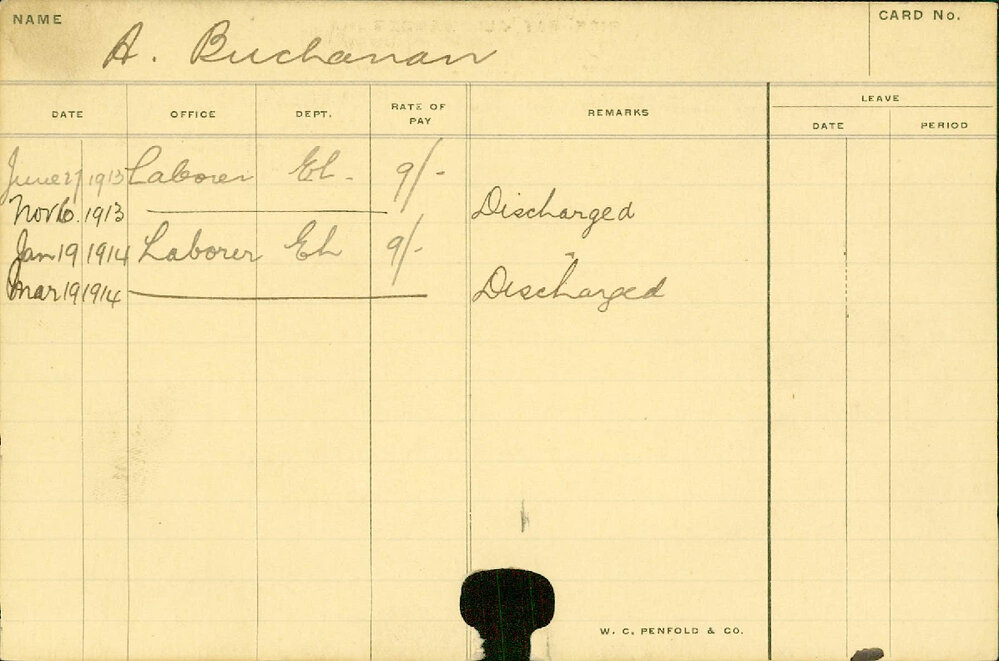 NAME A. Buchanan CARD No.
DATE OFFICE DEPT. RATE OF PAY REMARKS LEAVE
DATE PERIOD
June 27 1913 Laborer El. 9/-
Nov 6. 1913 Discharged
Jan 19 1914 Laborer El 9/-
Mar 19 1914 Discharged
W. C. PENFOLD & CO.